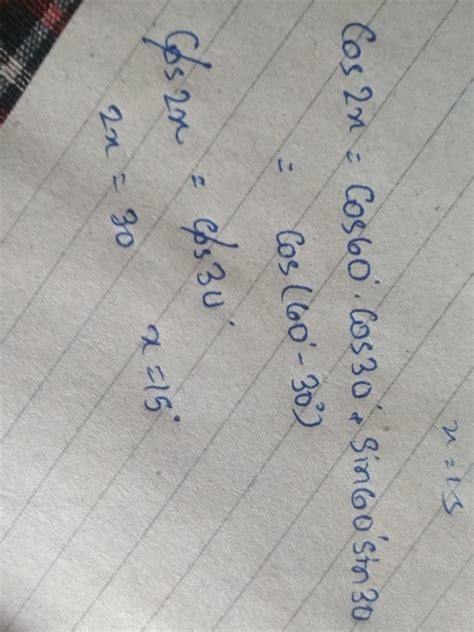 x=15
Cos2x = Cos60°.Cos30°+Sin60°Sin30
= Cos(60°-30°)
Cos2x = Cos30°
2x = 30 x=15°